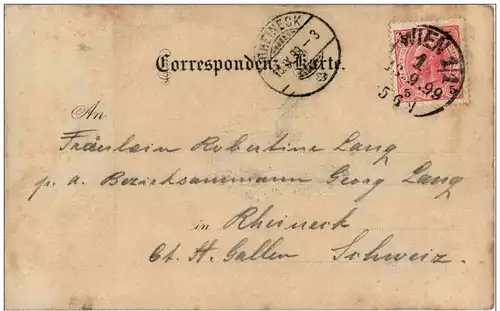 RHEINECK
Correspondenz-Karte.
WIEN 1/1
9.99
5
5
An
Fräulein Robertine Lang
p. a. Bezirksammann Georg Lang
in Rheineck
Ct. St. Gallen Schweiz.